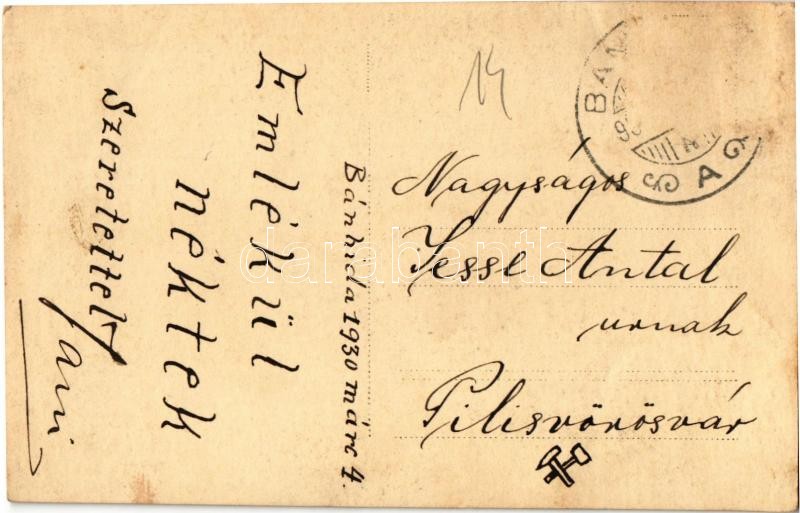 Emlékül
néktek
Szeretettel
Jani
Bánhida 1930 márc 4.
14
Nagyságos
Jessl Antal
urnak
Pilisvörösvár
SÁG
darabanth